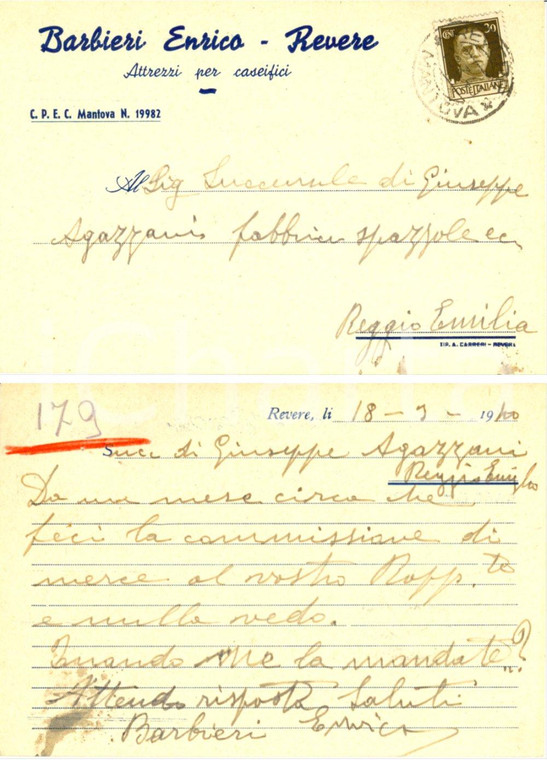 Barbieri Enrico - Revere
Attrezzi per caseifici
C. P. E. C. Mantova N. 19982
30
CENT
POSTE ITALIANE
MANTOVA
Al Sig Succursale di Giuseppe
Agazzani fabbrica spazzole ecc
Reggio Emilia
TIP. A. CARRERI - REVERE
179
Revere, li 18 - 3 - 1940
Succ di Giuseppe Agazzani
Reggio Emilia
Da un mese circa che
feci la commissione di
merce al vostro Rapp.te
e nulla vedo.
Quando me la mandate..?
Attendo risposta Saluti
Barbieri Enrico